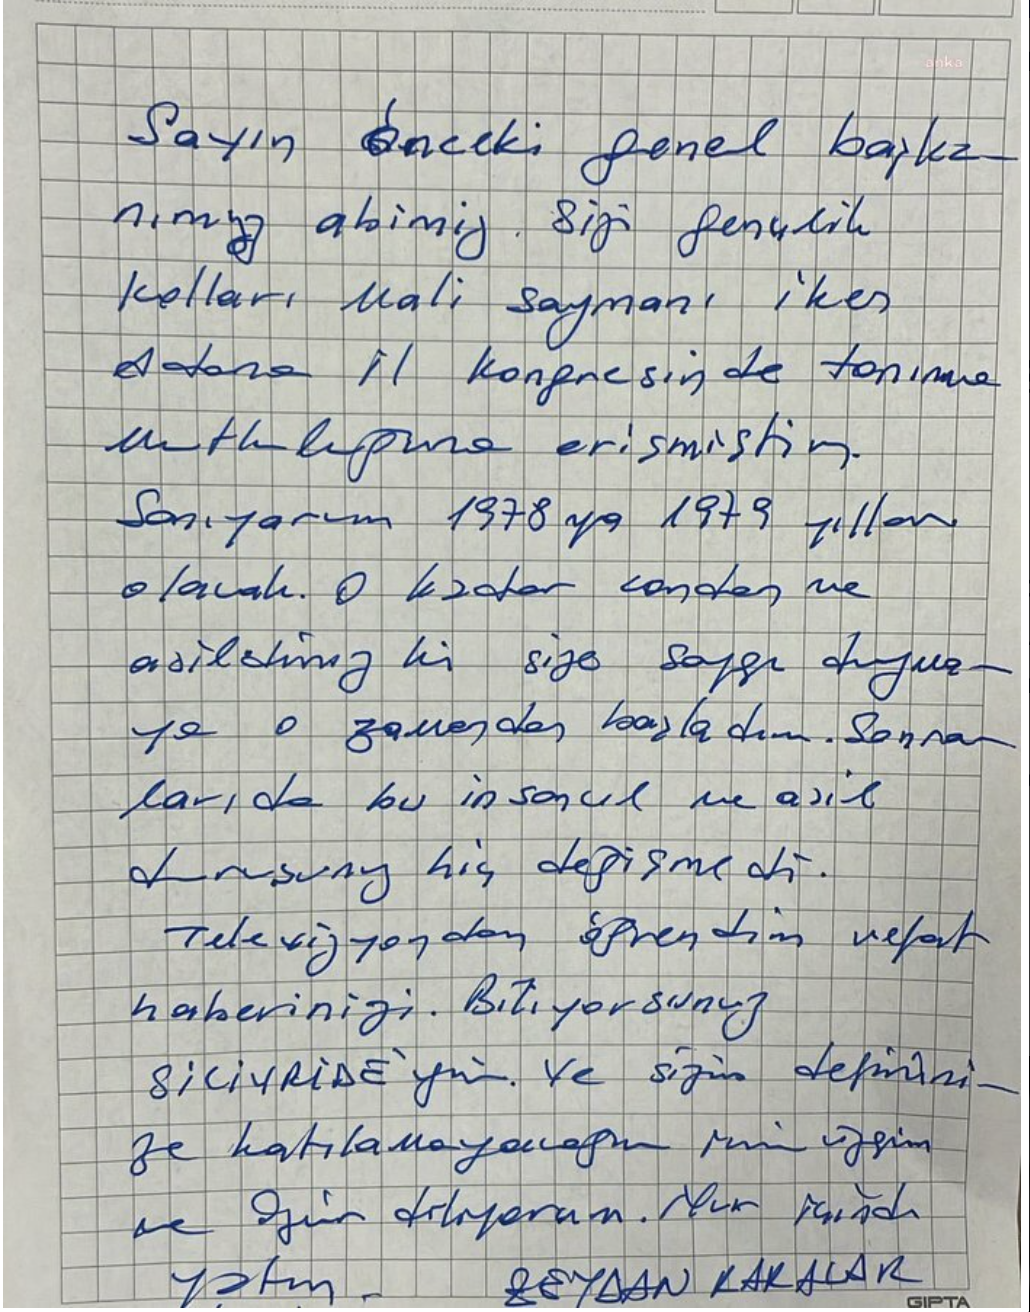 anka
Sayın önceki genel başka-
nımız abimiz. Sizi gençlik
kolları Mali saymanı iken
Adana il kongresinde tanıma
mutluluğuna erişmiştim.
Sanıyorum 1978 ya 1979 yılları
olacak. O kadar candan ve
asildiniz ki size saygı duyma-
ya o zamandan başladım. Sonra
ları da bu insancıl ve asil
duruşunuz hiç değişmedi.
Televizyondan öğrendim vefat
haberinizi. Biliyorsunuz
SİLİVRİDE'yim. Ve sizin defnini-
ze katılamayacağım için üzgün
ve özür diliyorum. Nur içinde
yatın. ZEYDAN KARALAR
GIPTA